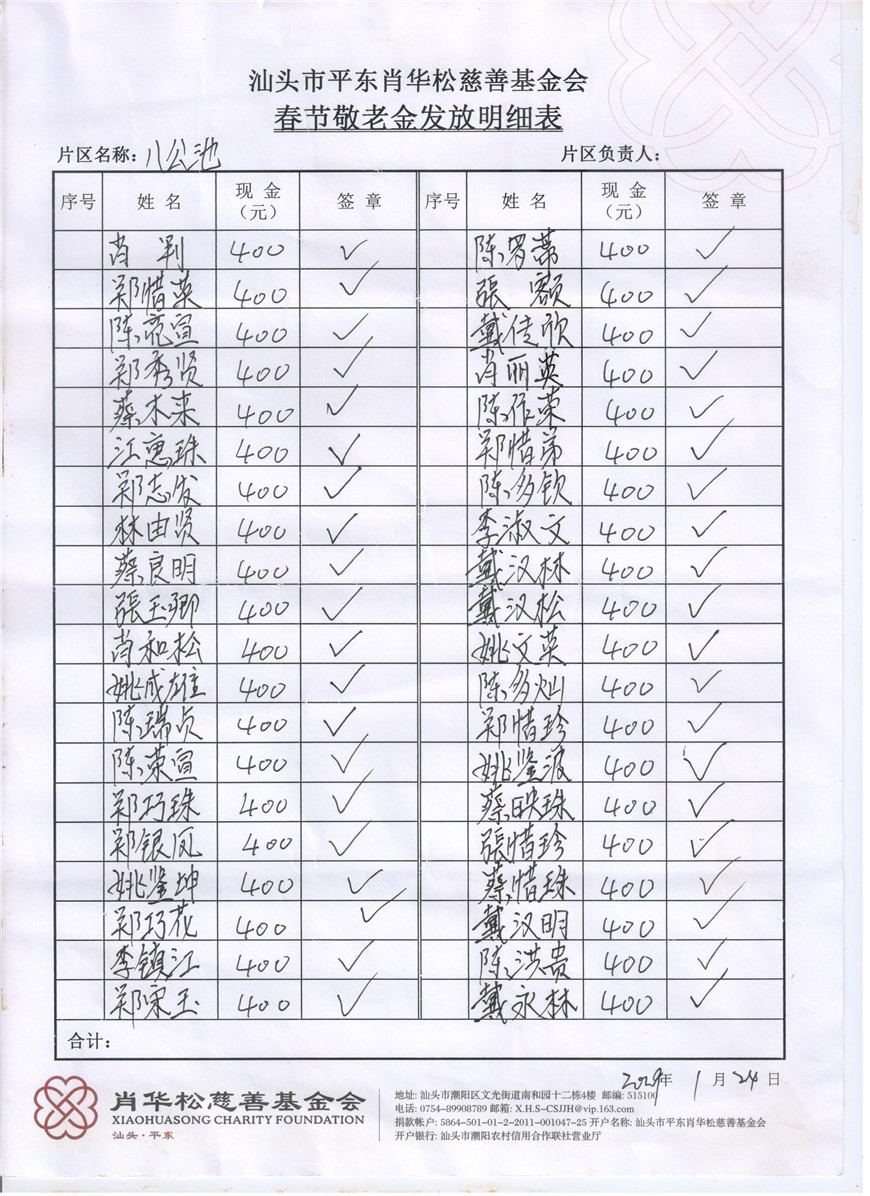 汕头市平东肖华松慈善基金会
春节敬老金发放明细表
片区名称：八公池 片区负责人：
序号 姓名 现金（元） 签章 序号 姓名 现金（元） 签章
肖 判 400 ✓ 陈罗蒂 400 ✓
郑惜英 400 ✓ 張 額 400 ✓
陈苑宣 400 ✓ 戴佳欣 400 ✓
郑秀贤 400 ✓ 肖丽英 400 ✓
蔡木来 400 ✓ 陈作荣 400 ✓
江惠珠 400 ✓ 郑惜弟 400 ✓
郑志发 400 ✓ 陈多钦 400 ✓
林由贤 400 ✓ 李淑文 400 ✓
蔡良明 400 ✓ 戴汉林 400 ✓
張玉卿 400 ✓ 戴汉松 400 ✓
肖和松 400 ✓ 姚文英 400 ✓
姚成雄 400 ✓ 陈多灿 400 ✓
陈瑞贞 400 ✓ 郑惜珍 400 ✓
陈荣宣 400 ✓ 姚鉴波 400 ✓
郑巧珠 400 ✓ 蔡映珠 400 ✓
郑银凤 400 ✓ 張惜珍 400 ✓
姚鉴坤 400 ✓ 蔡惜珠 400 ✓
郑巧花 400 ✓ 戴汉明 400 ✓
李镇江 400 ✓ 陈洪贵 400 ✓
郑宋玉 400 ✓ 戴永林 400 ✓
合计：
年 1 月 24 日
肖华松慈善基金会
XIAOHUASONG CHARITY FOUNDATION
汕头·平东
地址: 汕头市潮阳区文光街道南和园十二栋4楼 邮编: 515100
电话: 0754-89908789 邮箱: X.H.S-CSJJH@vip.163.com
捐款帐户: 5864-501-01-2-2011-001047-25 开户名称: 汕头市平东肖华松慈善基金会
开户银行: 汕头市潮阳农村信用合作联社营业厅